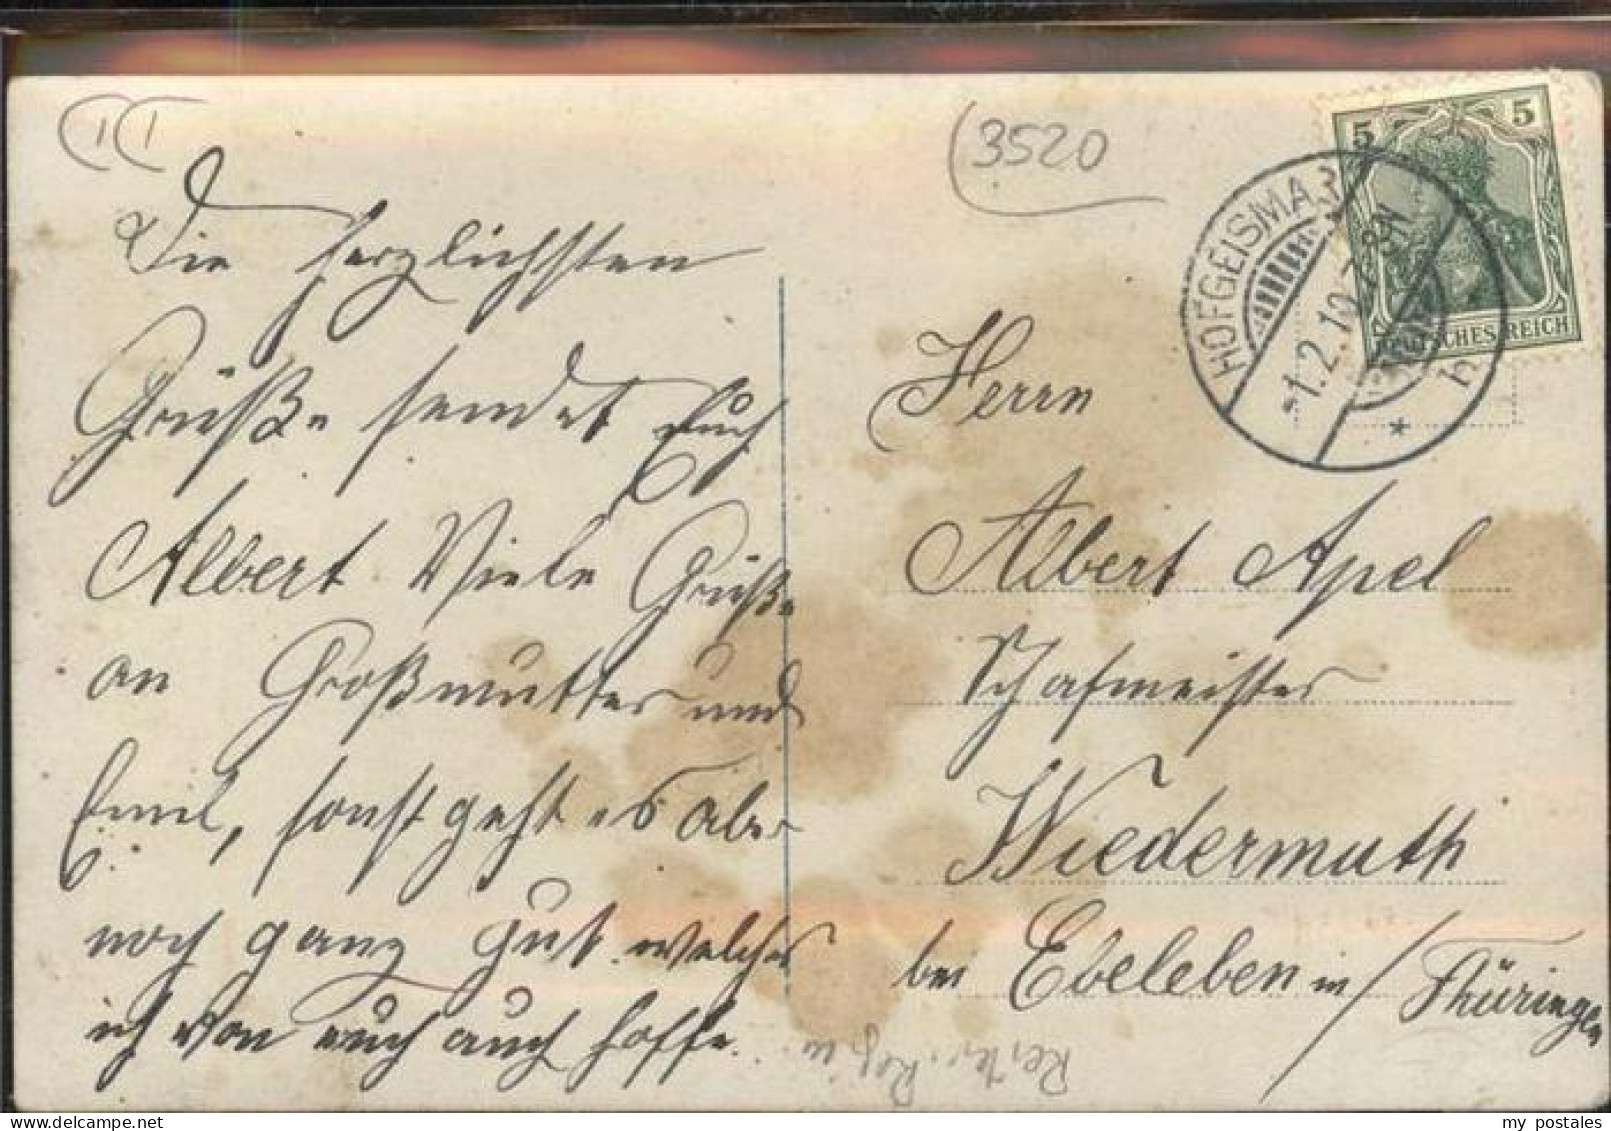 3520
5 5
DEUTSCHES REICH
HOFGEISMAR
1.2.10.7-8N
h
*
Die herzlichsten
Grüße sendet Euch
Albert Viele Grüße
an Großmutter und
Emil, sonst geht es aber
noch ganz gut welches
ich von euch auch hoffe.
Herrn
Albert Apel
Schafmeister
Wiedermuth
bei Ebeleben in / Thüringen
my postales